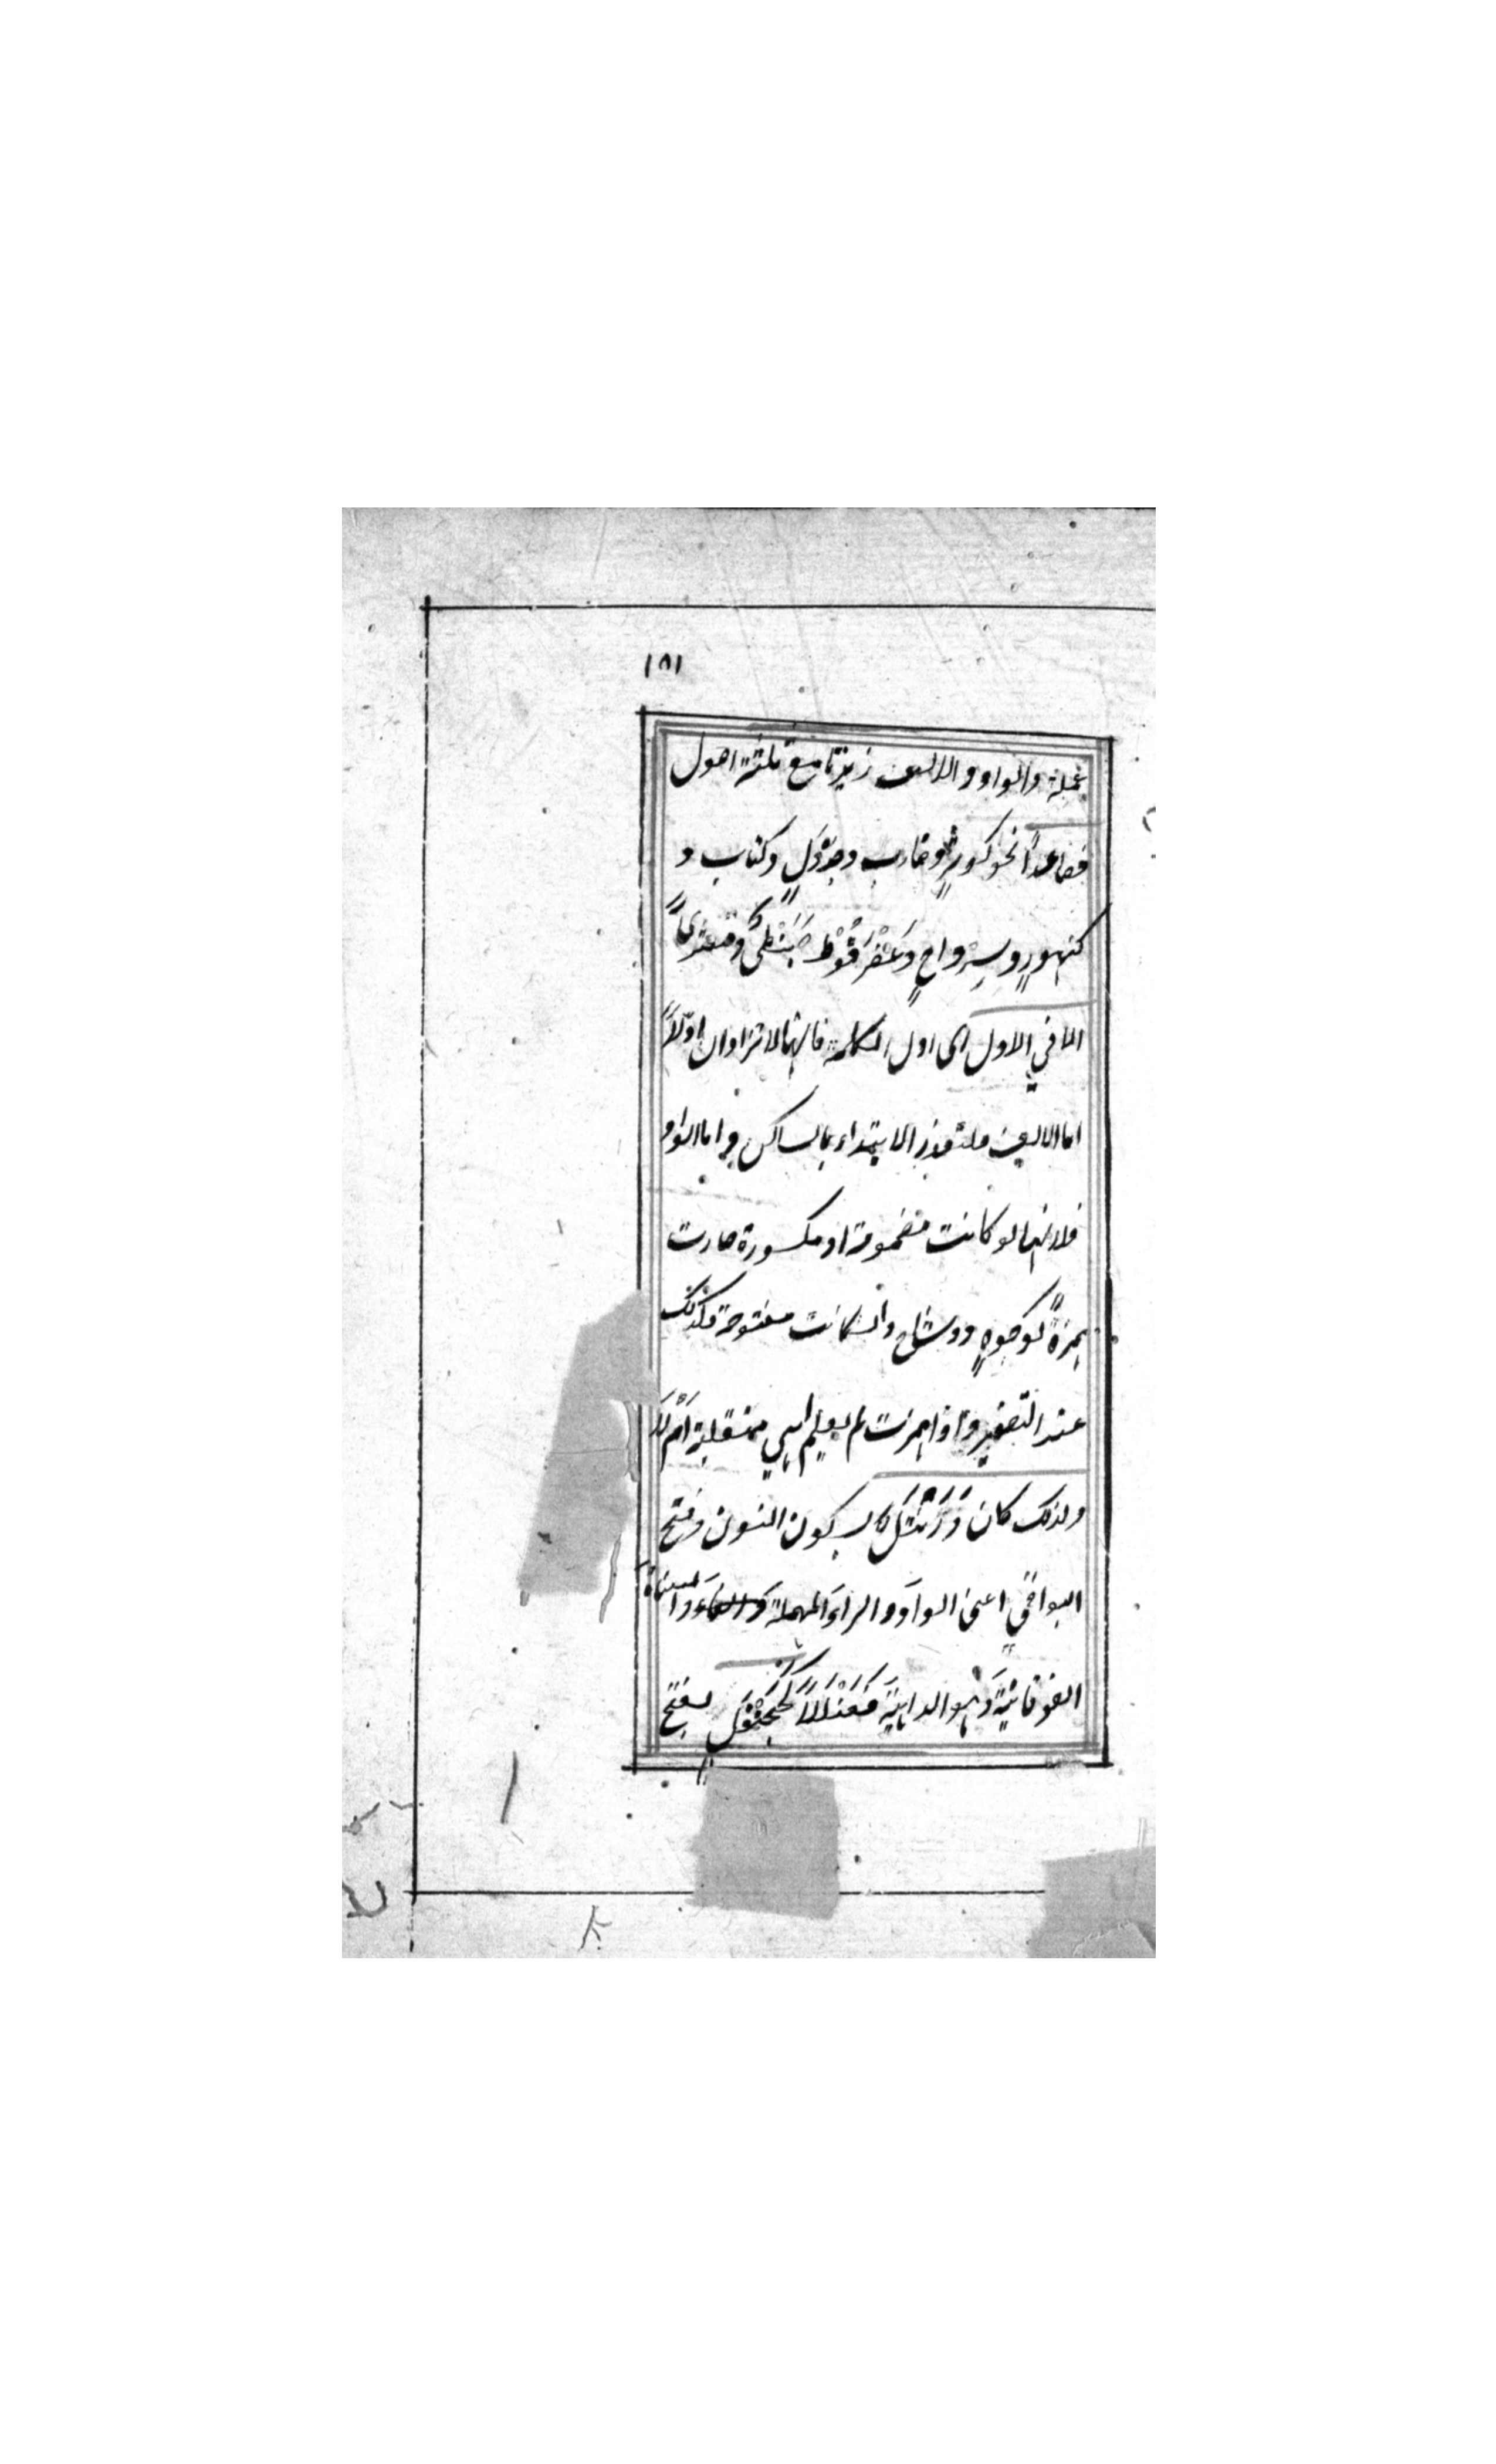 ١٥١
بخمسة والواو والالف زيدتا مع ثلثة اصول
فصاعداً نحو كوثرٍ وضارب وجَدْوَلٍ وكتاب و
كنهورٍ وسِرْداحٍ وعَضْرَفُوْطٍ حَبَنْطىً وقبعثرىً
الا في الاول اى اول الكلمة فانهما لا تزادان اوّلاً
اما الالف فلتعذر الابتداء بالساكن واما الواو
فلانها لو كانت مضمومة او مكسورة صارت
همزةً كوجوهٍ ووشاح وان كانت مفتوحة فكذلك
عند التصغير واذا همزت لم يعلم اهي منقلبة اَمْ لا
ولذلك كان وَرَنْتَلٌ بسكون النون وفتح
البواقي اعنى الواوَ والراءَ المهملة والمثناةَ
الفوقانيةَ وهو الداهيةُ فَعَنْلَلاً كَجَحَنْفَلٍ بفتح